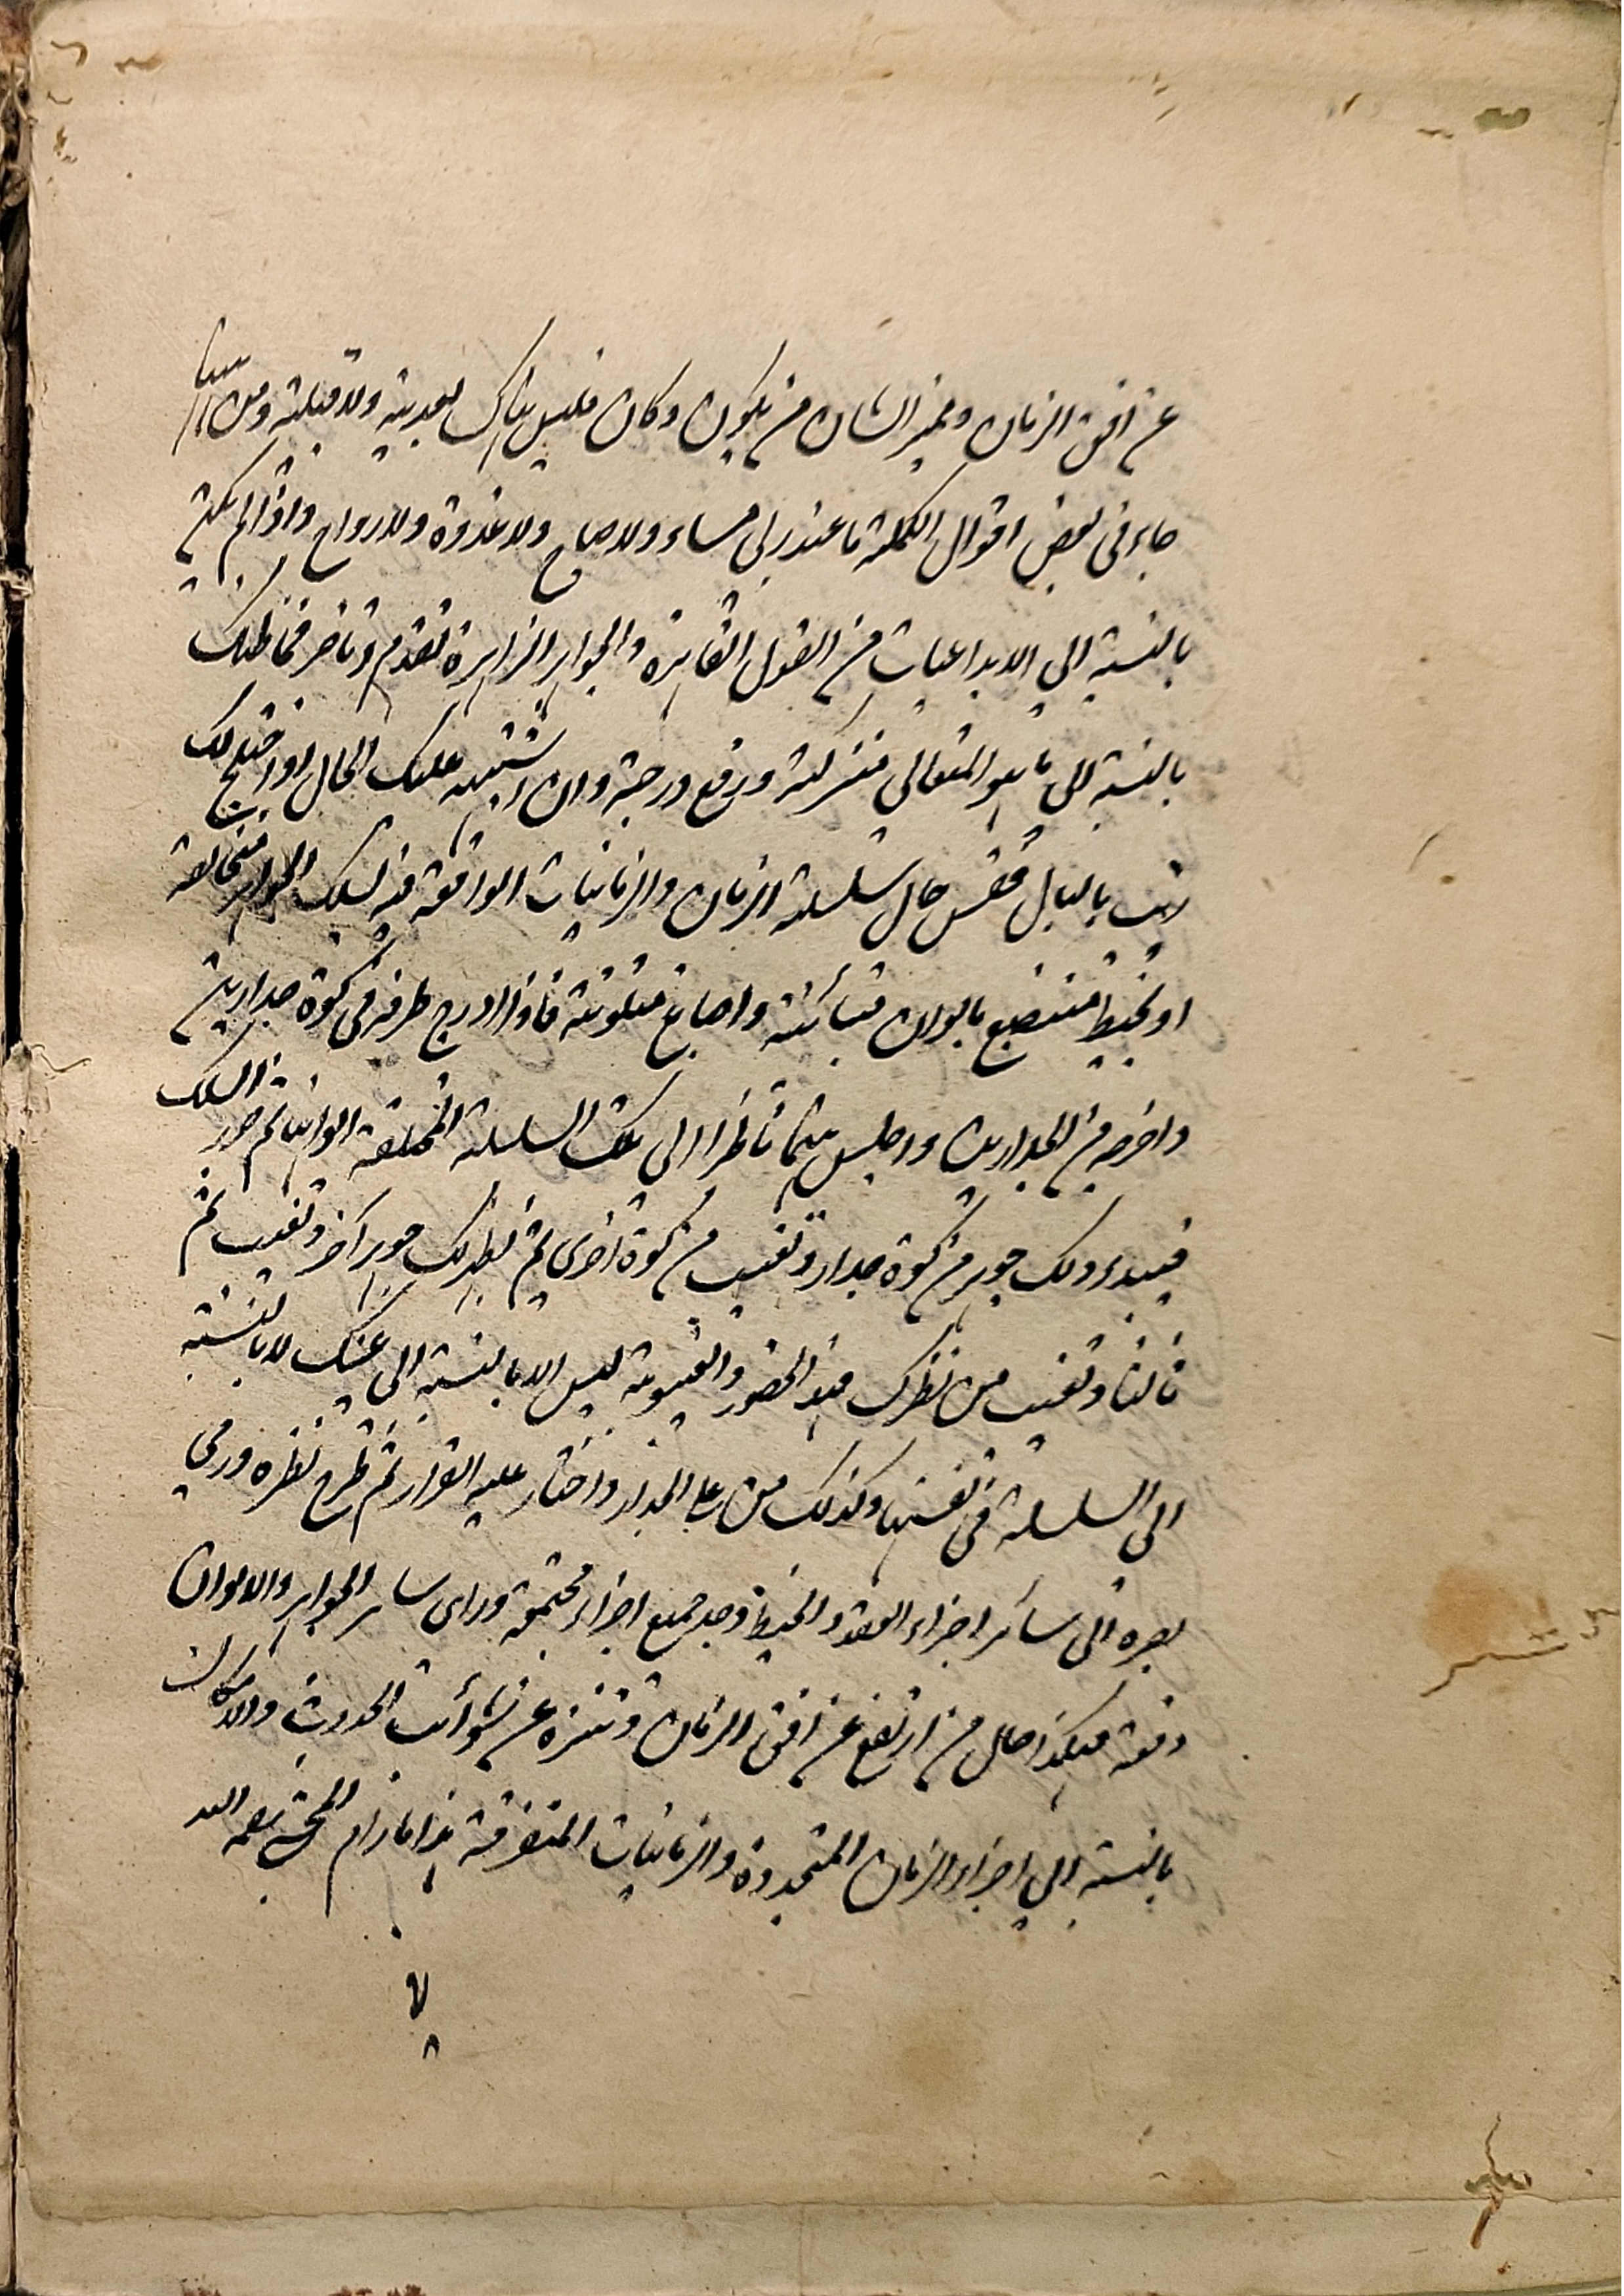 عن افق الزمان وتميز الشان من يكون وكان فليس هناك بعدية ولا قبلية ومن ههنا
جاء في بعض اقوال الكملة ما عند ربي مساء ولا صباح ولا غدوة ولا رواح واذا لم يكن
بالنسبة الى الابداعيات من العقول القاهرة والجواهر الزاهرة تقدم وتاخر فما ظنك
بالنسبة الى ما هو المتعالي منزلته ورفع درجته وان اشتبه عليك الحال او اختلج لك
ريب بالبال فقس حال سلسلة الزمان والزمانيات الواقعة فيه لسلك الجواهر متخالفة
او بخيط منصبغ بالوان متبائنة واصباغ متلونة فاذا ادرج طرفه في كوة جدارين
واخرج من الجدارين واجلس بينهما ناظرا الى تلك السلسلة المختلفة الوانها ثم جر السلك
فيبدء لك جوهر من كوة جدار وتغيب من كوة اخرى ثم يظهر لك جوهر آخر وتغيب ثم
ثالثا وتغيب من نظرك فهذا الحضور والغيبوبة ليس الا بالنسبة الى عينك لا بالنسبة
الى السلسلة في نفسها وكذلك من على الجدار واختار عليه القرار ثم طرح نظره ورمى
بصره الى سائر اجزاء العقد والخيط وجد جميع اجزاء مجتمعة وراى ساير الجواهر والالوان
دفعة فهكذا حال من ارتفع عن افق الزمان وتنزه عن شوائب الحدوث والامكان
بالنسبة الى اجزاء الزمان المتجددة والزمانيات المتفرقة هذا ما رام المحشي رحمه الله